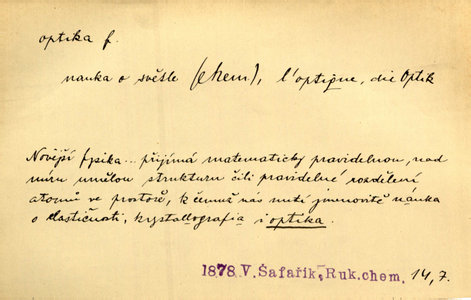 optika f.
nauka o světle (chem), l'optique, die Optik
Novější fysika... přijímá matematicky pravidelnou, nad
míru umělou strukturu čili pravidelné rozdělení
atomů ve prostoře, k čemuž nás nutí jmenovitě nauka
o elastičnosti, krystallografia i optika.
1878 V. Šafařík, Ruk.chem. 14,7.